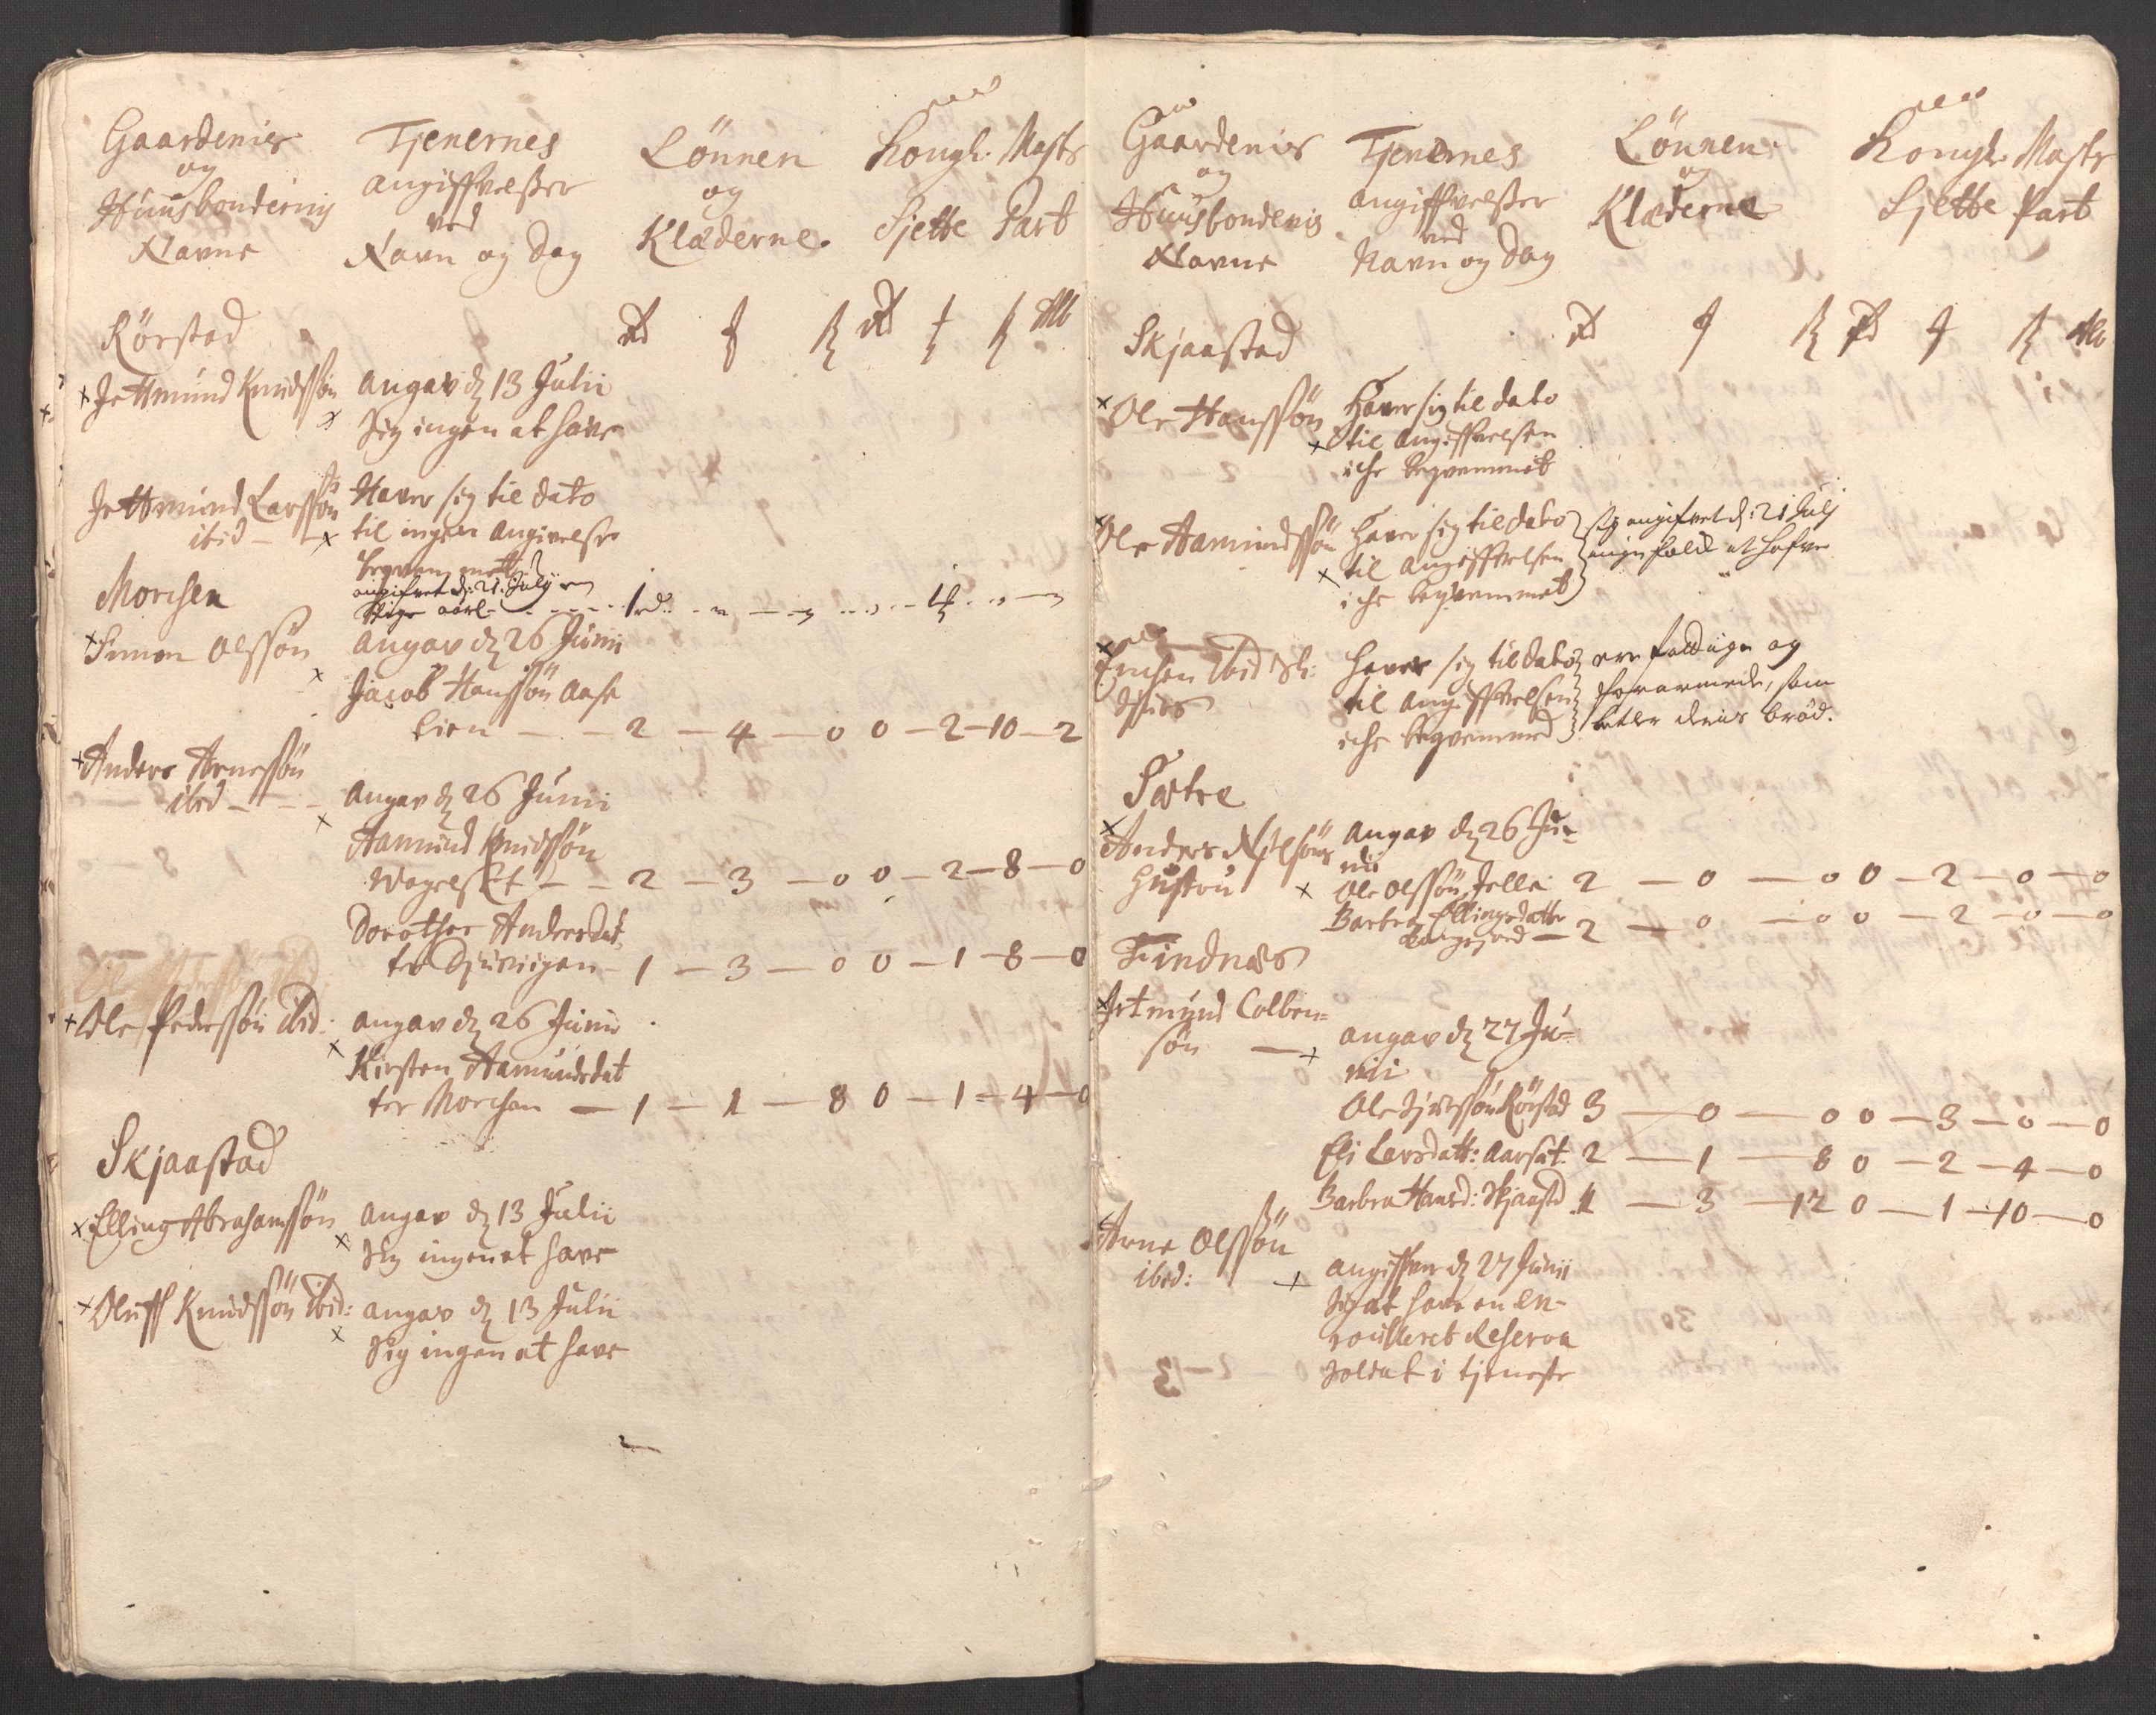 Gaardenis
og
Huusbondernis
Navne
Tjenernes
angiffvelßer
ved
Navn og dag
Lönnen
og
Klæderne.
Kongl. Mayts
Sjette Part
Rörstad
Jettmund Knudssön
angav d 13 Julii
Sig ingen at have
Jettmund Larssön
ibid
Haver sig til dato
til ingen angivelse
beqvemmet
angifvet d: 21. Julij en
Pige aarl - 1 rd
Morchen
Simon Olssön
angav d 26 Junii
Jacob Hanssön Aase
lien - 2 - 4 - 0 0 - 2 - 10 - 2
Anders Arnessön
ibid
angav d 26 Junii
Aamund Knudssön
- 2 - 3 - 0 0 - 2 - 8 - 0
Dorothe Andersdat
ter - 1 - 3 - 0 0 - 1 - 8 - 0
Ole Pederssön ibid:
angav d 26 Junii
Kirsten Aamundsdat
ter Morchen - 1 - 1 - 8 0 - 1 - 4 - 0
Skjaastad
Elling Abrahamssön
angav d 13 Julii
Sig ingen at have
Oluff Knudssön ibid:
angav d 13 Julii
Sig ingen at have
Gaardenis
og
Huusbondenis
Navne
Tjenernes
angiffvelßer
ved
Navn og dag
Lönnen
og
Klæderne
Kongl. Mayts
Sjette Part
Skjaastad
Ole Hanssön
Haver sig til dato
til angiffvelsen
iche beqvemmet
Ole Aamundssön
Haver sig til dato
til angiffvelsen
iche beqvemmet
sig angifvet d: 21 Julj
ingen folck at hafve
Enchen ibid
haver sig til dato
til angiffvelsen
iche beqvemmed
ere fattige og
forarmede, som
betler deris bröd.
Sætre
Anders Nilsöns
Hustru
angav d 26 Ju-
nii
Ole Olssön Jelle 2 - 0 - 0 0 - 2 - 0 - 0
Barbra Ellingsdatter
- 2 - 0 - 0 0 - 2 - 0 - 0
Tindnæs
Jetmund Colben=
sön
angav d 27 Ju=
nii
Ole Sjurssön Rörstad 3 - 0 - 0 0 - 3 - 0 - 0
Eli Larsdatt: Aarsæt 2 - 1 - 8 0 - 2 - 4 - 0
Barbra Hansd: Skjaastd 1 - 3 - 12 0 - 1 - 10 - 0
Arne Olssön
ibid:
angiffver d 27 Junii
Sig at have en en-
roulleret Reserve
Soldat i tjeneste